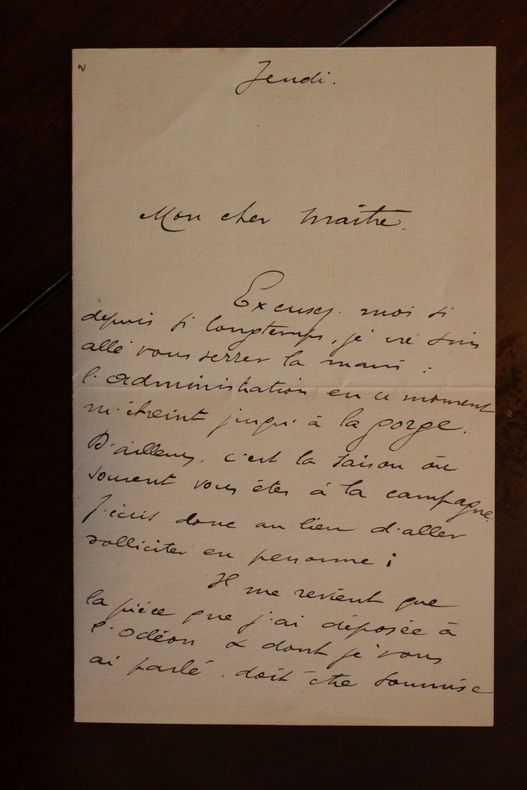 Jeudi.
Mon cher Maître.
Excusez-moi si
depuis si longtemps, je ne suis
allé vous serrer la main :
l'administration en ce moment
m'étreint jusqu'à la gorge.
D'ailleurs, c'est la saison où
souvent vous êtes à la campagne
J'écris donc au lieu d'aller
solliciter en personne ;
Il me revient que
la pièce que j'ai déposée à
l'Odéon & dont je vous
ai parlé, doit être soumise